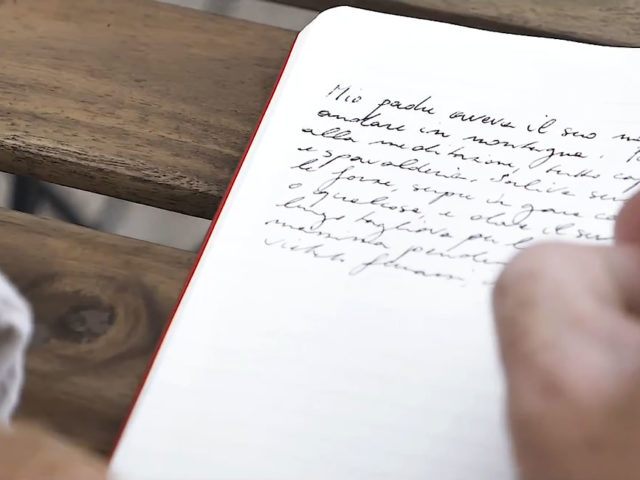 Mio padre aveva il suo m
andare in montagna. P
alla meditazione, tutto cap
e spavalderia. Saliva sen
le forze, sempre in gara co
o qualcosa, e dove il sen
lungo tagliava per l
massima penden
vietato fermarsi,